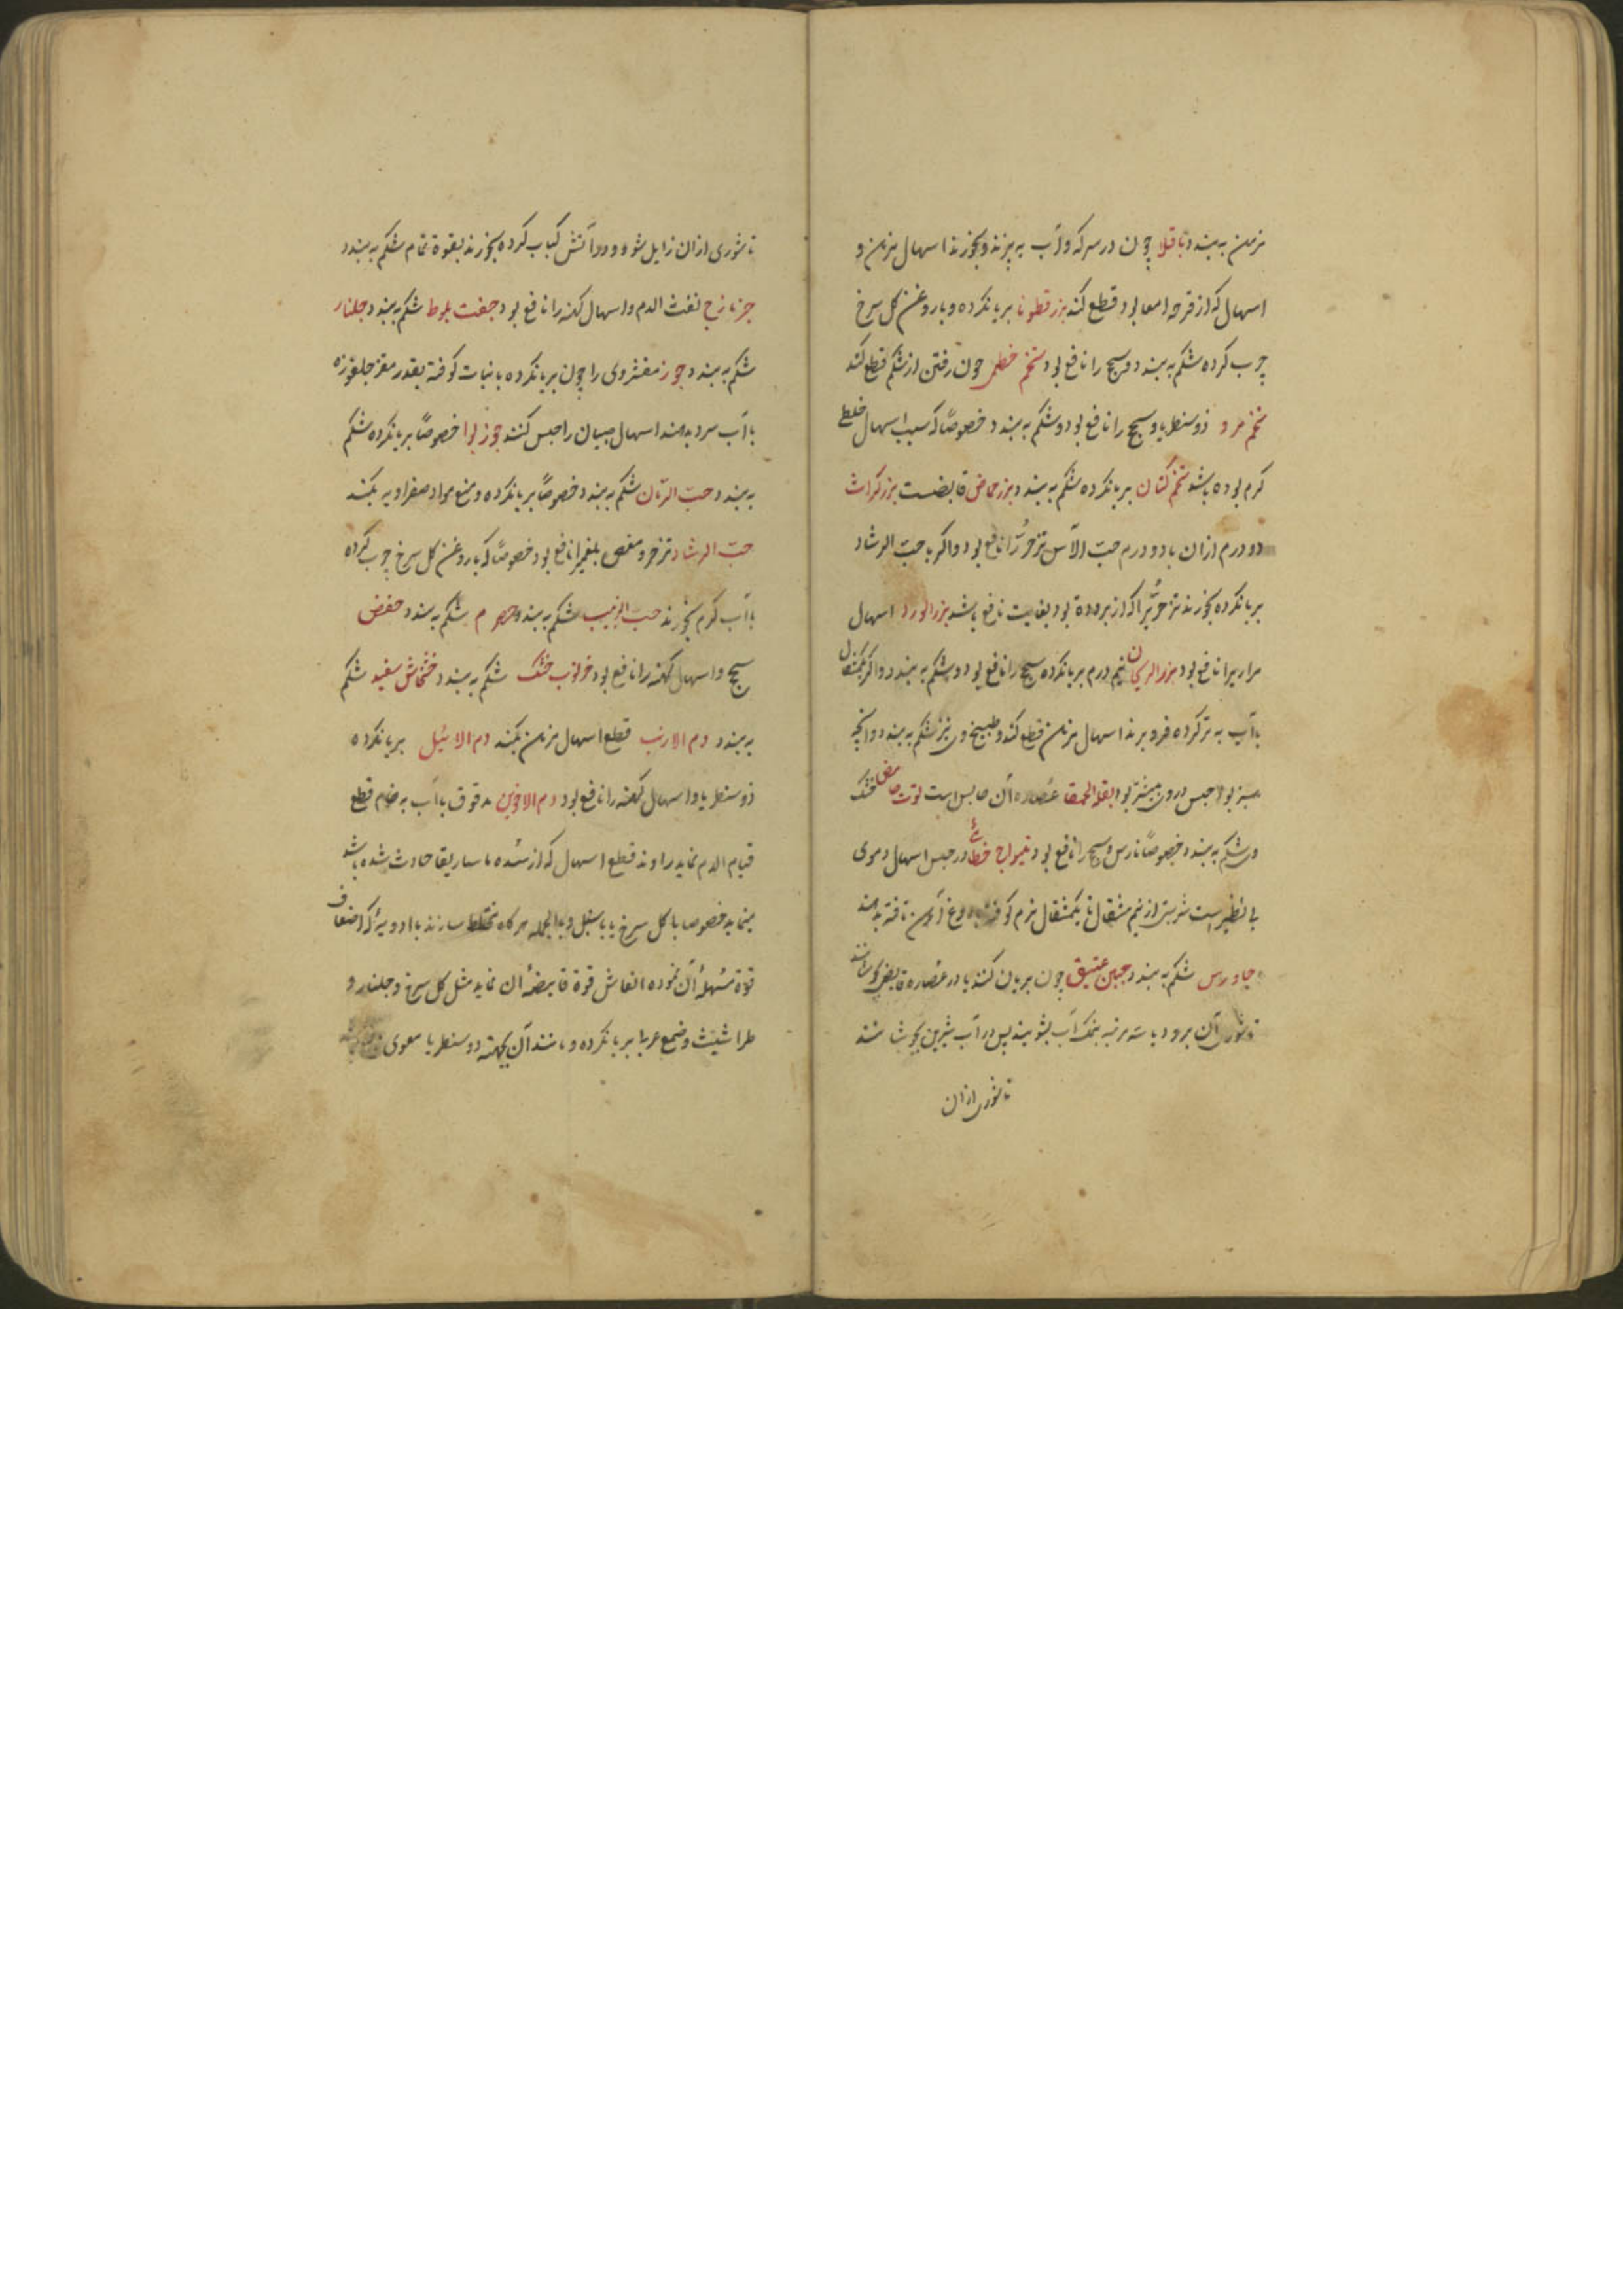 مزمن به بندد باقلا چون در سرکه و آب به پزند و بخورند اسهال مزمن و
اسهال که از قرحه امعا بود قطع کند بزر قطونا بریانکرده و با روغن کل سرخ
چرب کرده شکم به بندد و سحج را نافع بود تخم خطمی خون رفتن از شکم قطع کند
تخم مرو ذوسنطریا و سحج را نافع بود و شکم به بندد خصوصًا که سبب اسهال خلطی
کرم بوده باشد تخم کتان بریانکرده شکم به بندد بزر حماض قابضست بزر کراث
دو درم از ان با دو درم حبّ الآس تزحّر را نافع بود و اکر با حبّ الرشاد
بریانکرده بخورند تزحّر را که از برودة بود بغایت نافع باشد بزر الورد اسهال
مراریرا نافع بود بزر الریحان نیم درم بریانکرده سحج را نافع بود و شکم به بندد و اکر یکمثقال
باآب به تر کرده فرو برند اسهال مزمن قطع کند و طبیخ وی نیز شکم به بندد و آنچه
سبز بود حبس در وی بیشتر بود بقلة الحمقا عصاره آن حابس است توت حامض خشک
وی شکم به بندد خصوصًا نارس و سحج را نافع بود تیواج خطائی در حبس اسهال دموی
بی نظیر است شربتی از نیم مثقال تا یکمثقال نرم کوفته با دوغ آهن تافته بدهند
جاورس شکم به بندد جبن عتیق چون بریان کنند یا در عصاره قابض بجوشانند
تا شوری آن برود یا سه مرتبه بنمک آب بشویند پس در آب شیرین بجوشانند
تا شوری ازان
تا شوری ازان زایل شود و در آتش کباب کرده بخورند بقوة تمام شکم به بندد
جزنازج نفث الدم و اسهال کهنه را نافع بود جفت بلوط شکم به بندد جلنار
شکم به بندد جوز مقشروی را چون بریانکرده با نبات کوفته بقدر مغز جلغوزه
باآب سرد بدهند اسهال صبیان را حبس کنند جوز بوا خصوصًا بریانکرده شکم
به بندد حبّ الرّمان شکم به بندد خصوصًا بریانکرده و منع مواد صفراویه بکند
حبّ الرشاد تزحر و مغص بلغمیرا نافع بود خصوصًا که با روغن کل سرخ چرب کرده
باآب کرم بخورند حبّ الزبیب شکم به بندد حصرم شکم به بندد حضض
سحج و اسهال کهنه را نافع بود خرنوب خشک شکم به بندد خشخاش سفید شکم
به بندد دم الارنب قطع اسهال مزمن بکند دم الائیل بریانکرده
ذوسنطریا و اسهال کهنه را نافع بود دم الاخوین مدقوق باآب به خام قطع
قیام الدم نماید راوند قطع اسهال که از سده ماساریقا حادث شده باشد
مینماید خصوصا با کل سرخ یا با سنبل و بالجمله هرکاه مختلط سازند با ادویه که اضعاف
قوّة مسهلهٔ آن نموده انعاش قوة قابضهٔ ان نماید مثل کل سرخ و جلنار و
طراثیث و صمغ عربی بریانکرده و مانند آن بجهة ذوسنطریا معوی